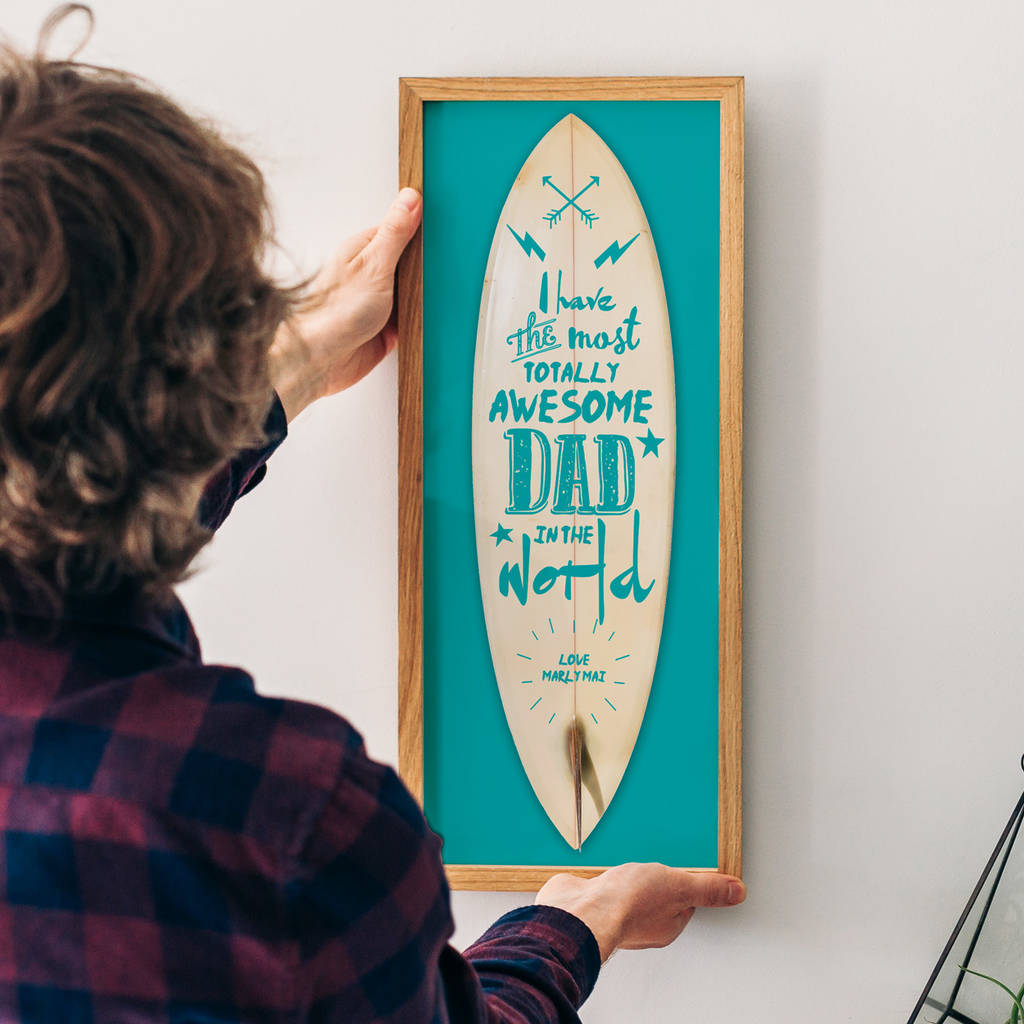 I have
the most
TOTALLY
AWESOME
DAD
IN THE
World
LOVE
MARLY MAI